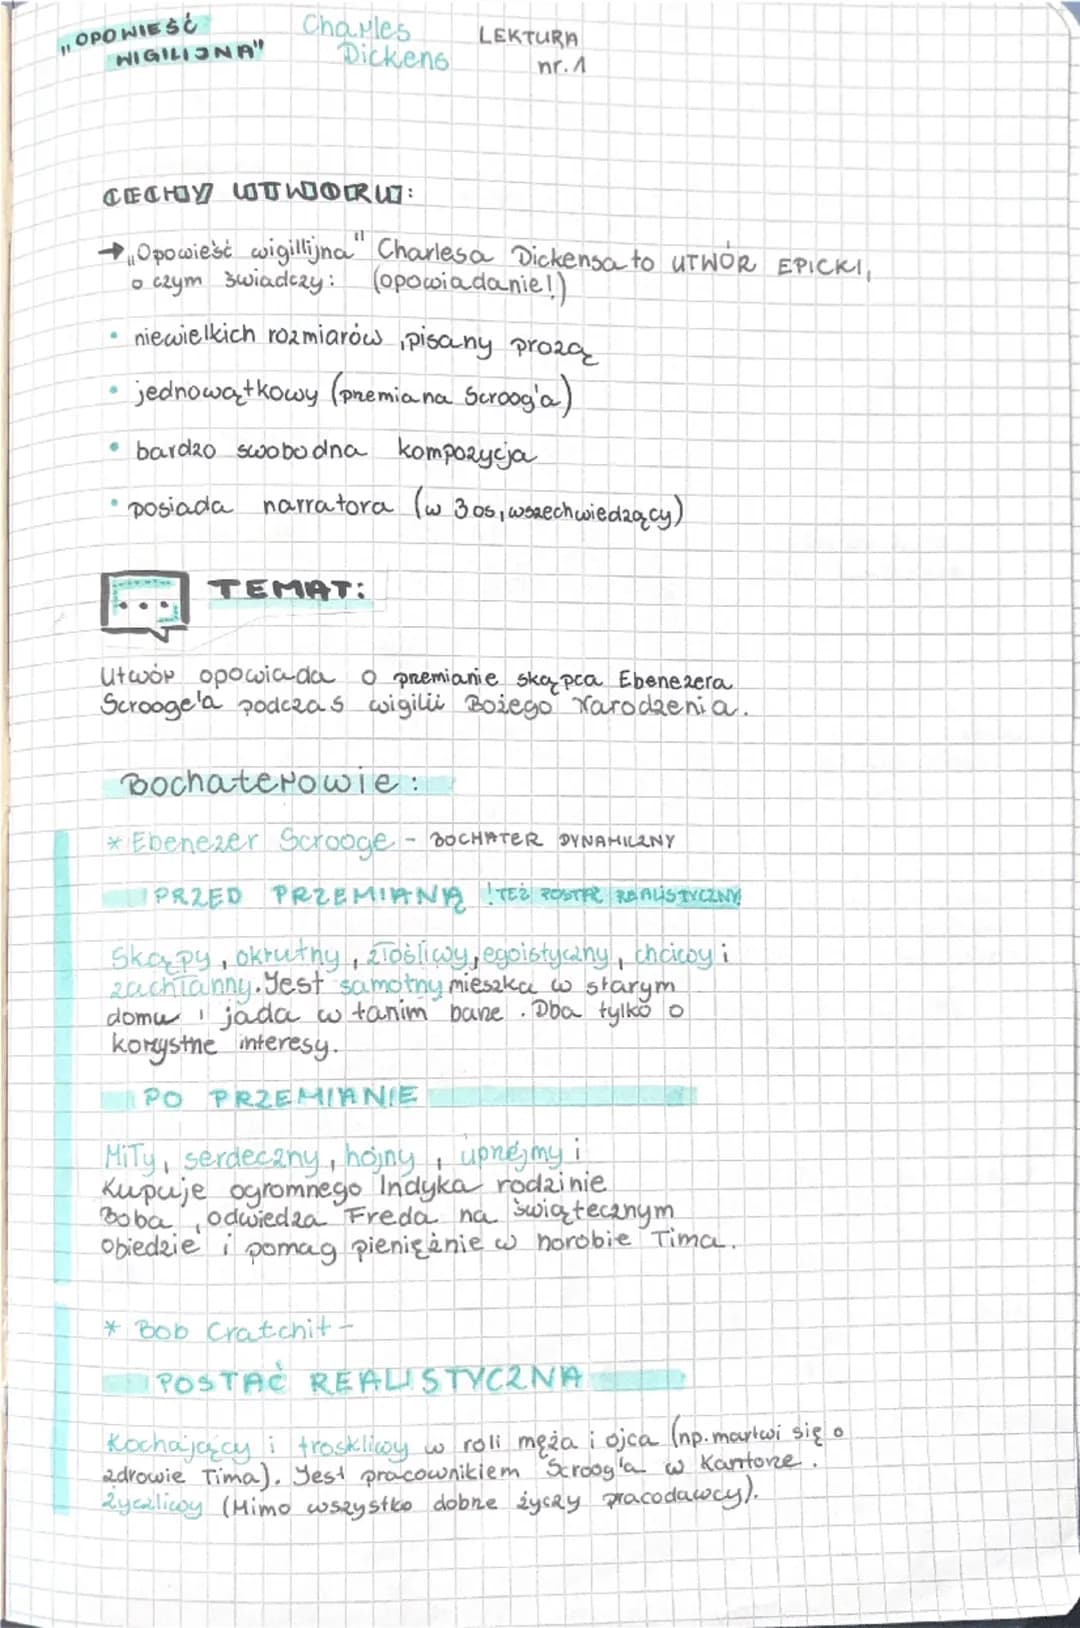 „OPOWIEŚĆ WIGILIJNA"
Charles Dickens
LEKTURA nr.1
CECHY UTWORU:
→ „Opowieść wigillijna" Charlesa Dickensa to UTWÓR EPICKI,
o czym świadczy: (opowiadanie!)
• niewielkich rozmiarów, pisany prozą
• jednowątkowy (przemiana Scroog'a)
• bardzo swobodna kompozycja
• posiada narratora (w 3 os, wszechwiedzący)
TEMAT:
Utwór opowiada o przemianie skąpca Ebenezera
Scrooge'a podczas wigilii Bożego Narodzenia.
Bochaterowie:
* Ebenezer Scrooge - BOCHATER DYNAMICZNY
PRZED PRZEMIANĄ !TEŻ POSTAĆ REALISTYCZNY!
Skąpy, okrutny, złośliwy, egoistyczny, chciwy i
zachłanny. Jest samotny mieszka w starym
domu i jada w tanim barze. Dba tylko o
korzystne interesy.
PO PRZEMIANIE
Miły, serdeczny, hojny, uprzejmy i
Kupuje ogromnego Indyka rodzinie
Boba, odwiedza Freda na świątecznym
Obiedzie i pomag pieniężnie w horobie Tima.
* Bob Cratchit -
POSTAĆ REALISTYCZNA
Kochający i troskliwy w roli męża i ojca (np. martwi się o
zdrowie Tima). Jest pracownikiem Scroog'a w Kantorze.
Życzliwy (Mimo wszystko dobrze życzy pracodawcy).